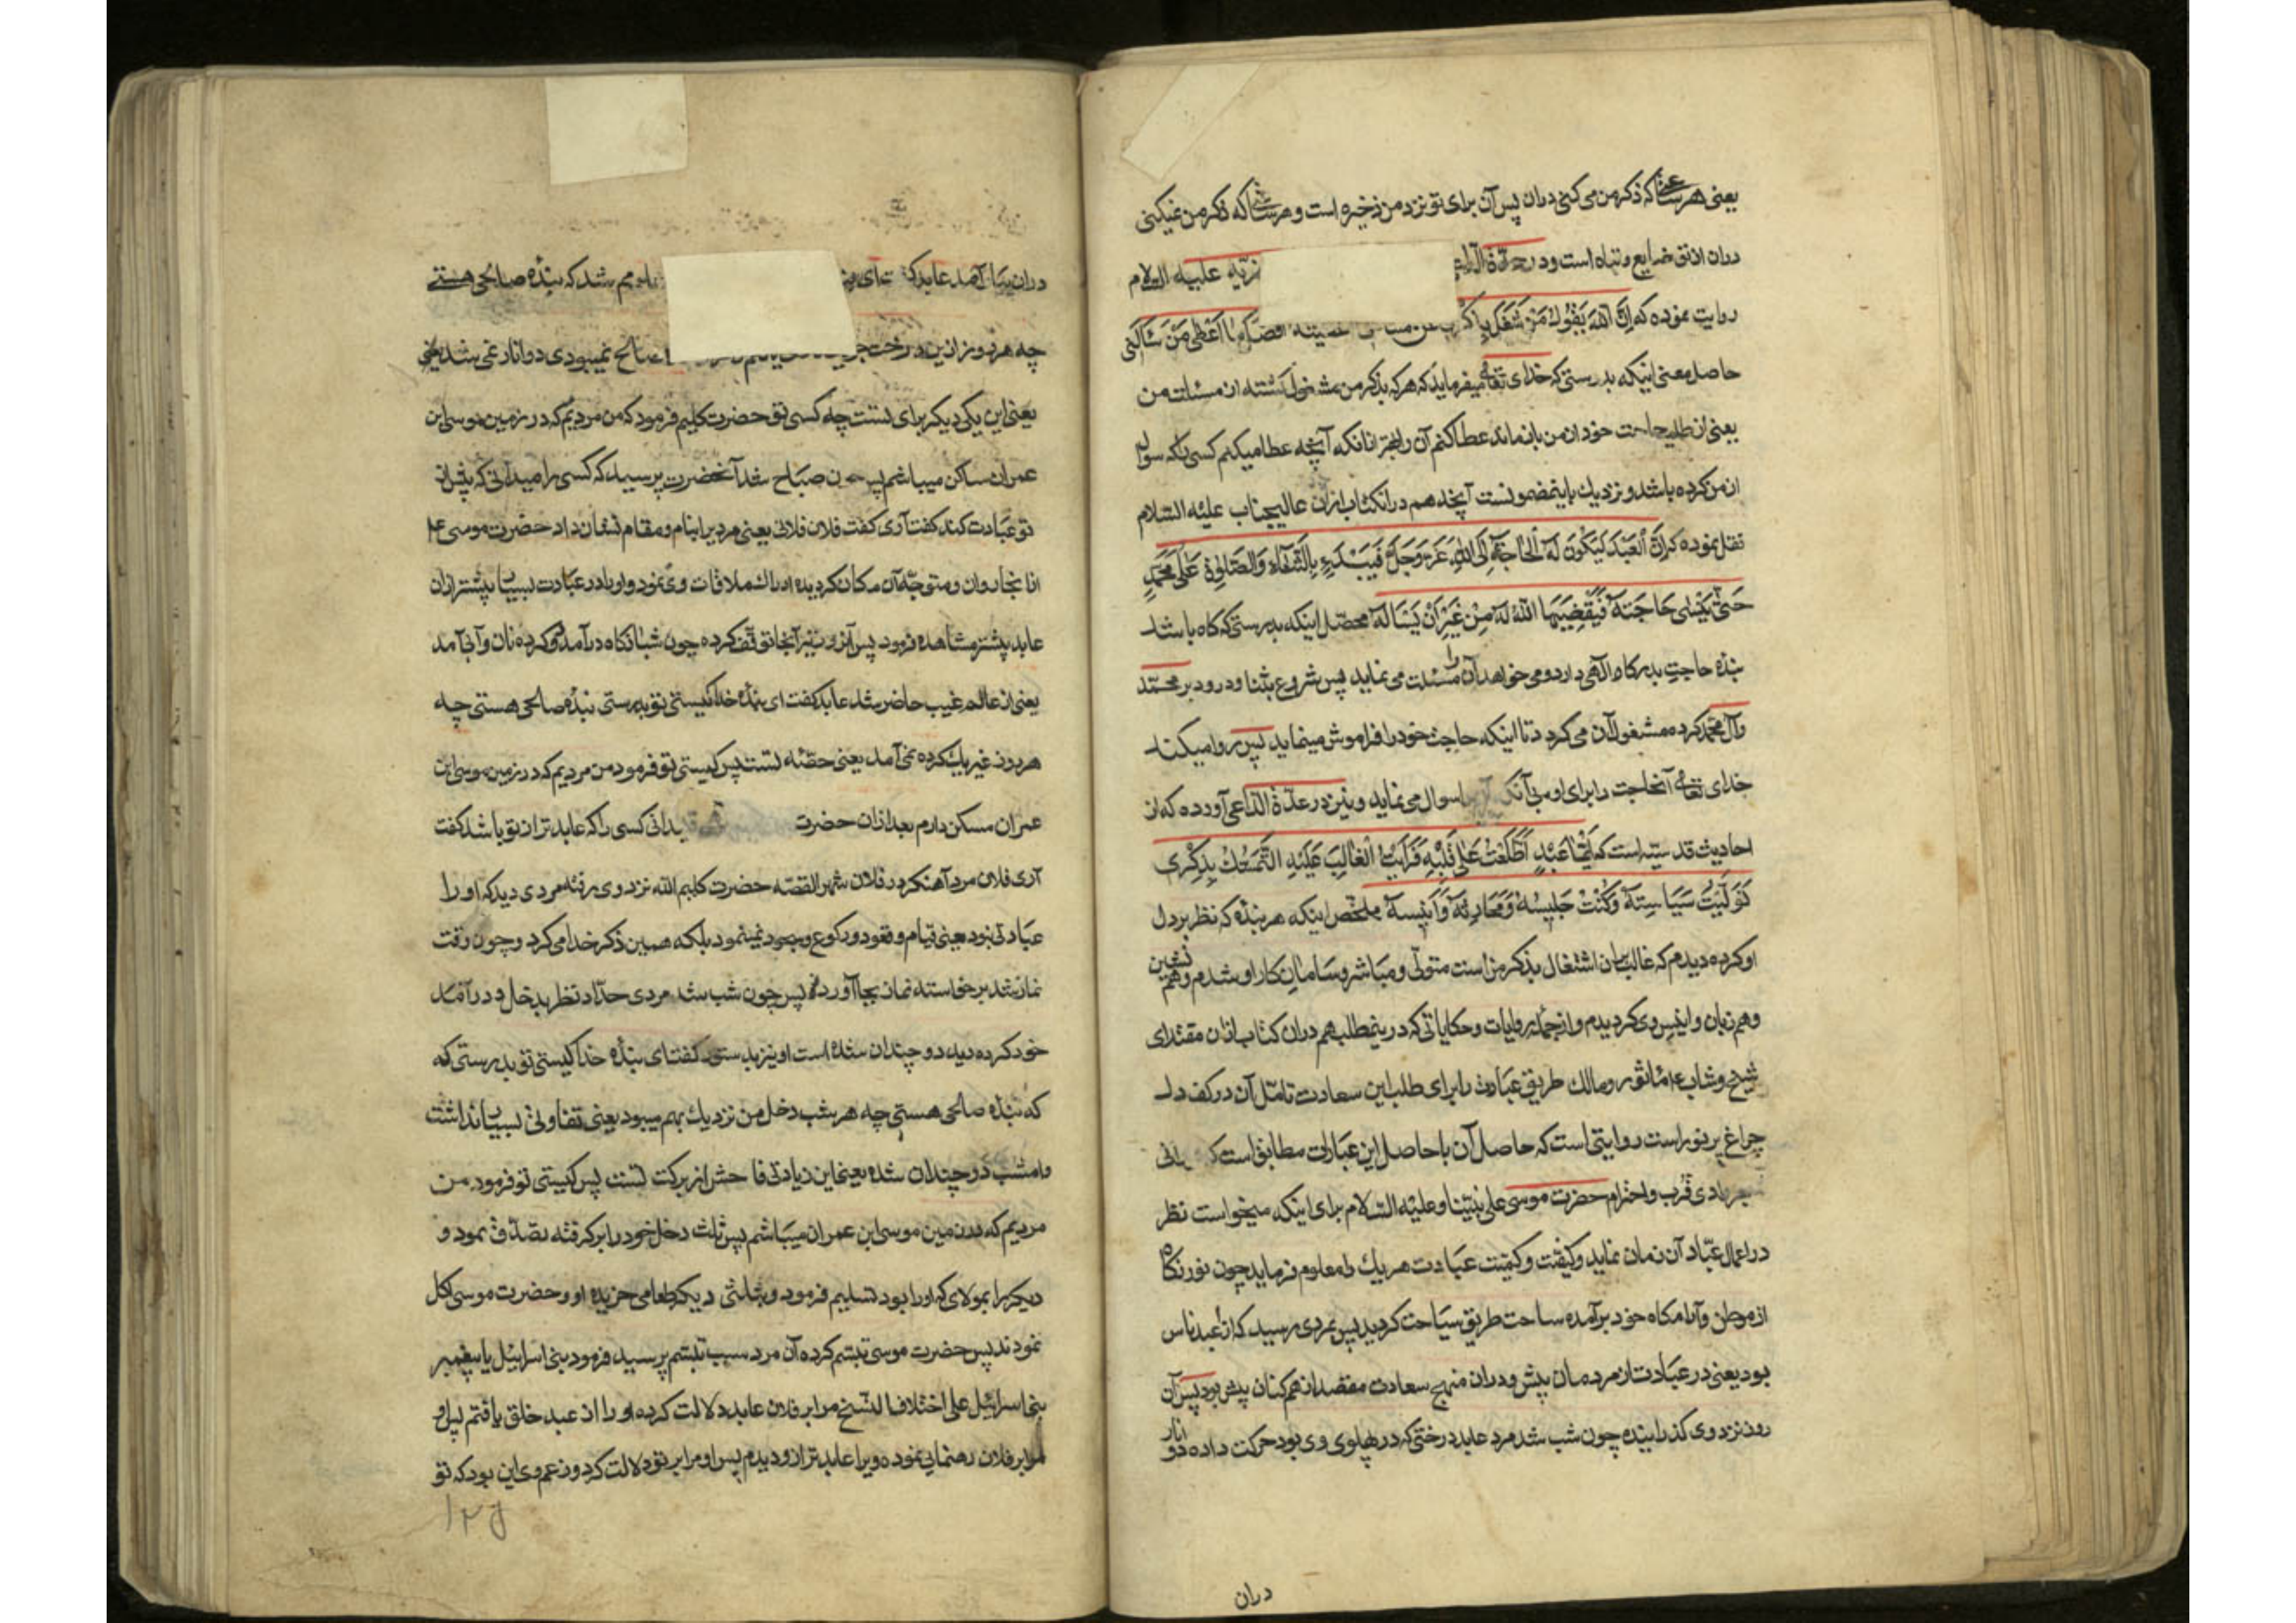 یعنی هر ساعتی که ذکر من می کنی دران پس آن برای تو نزد من ذخیره است و هر ساعتی که ذکر من نمیکنی
دران از تو ضایع و تباه است و در عدّة الداعی علیه السلام
روایت نموده که اِنَّ اللهَ یَقُولُ مَنْ شَغَلَ اَعْطِی مَنْ سَأَلَنی
حاصل معنی اینکه بدرستی که خدای تعالی میفرماید که هر که بذکر من مشغول کشته از مسئلت من
یعنی از طلب حاجت خود از من بازماند عطا کنم آن را بهتر از آنکه آنچه عطا میکنم کسی را که سوال
از من کرده باشد و نزدیک باینمضمونست آنچه هم درانکتاب ازان عالیجناب علیه السلام
نقل نموده که اِنَّ الْعَبْدَ لَیَکُونَ لَهُ الْحَاجَةُ اِلَی اللهِ عَزَّ وَجَلَّ فَیَبْدَءُ بِالثَّنَاءِ وَالصَّلٰوةِ عَلٰی مُحَمَّدٍ
حَتّٰی یَنْسٰی حَاجَتَهُ فَیَقْضِیهَا اللهُ لَهُ مِنْ غَیْرِ اَنْ یَسْأَلَهُ محصّل اینکه بدرستی که گاه باشد
بنده حاجت بدرگاه الٰهی دارد و می خواهد آن را مسئلت می نماید پس شروع بثنا و درود بر محمّد
وآل محمّد کرده مشغول آن می گردد تا اینکه حاجت خود را فراموش مینماید پس روا میکند
خدای تعالی آنحاجت را برای او بی آنکه سوال می نماید و نیز در عدّة الدّاعی آورده که از
احادیث قدسیّه است که اَیُّمَا عَبْدٍ اطَّلَعْتُ عَلٰی قَلْبِهِ فَرَأَیْتُ الْغَالِبَ عَلَیْهِ التَّمَسُّکَ بِذِکْرِی
تَوَلَّیْتُ سِیَاسَتَهُ وَکُنْتُ جَلِیسَهُ وَمُحَادِثَهُ وَاَنِیسَهُ ملخّص اینکه هر بنده که نظر بر دل
او کرده دیدم که غالب بران اشتغال بذکر من است متولّی و مباشر و سامان کار او شدم و هم نشین
و هم زبان و انیس وی کردیدم و از جمله روایات و حکایاتی که درینمطلب هم دران کتاب ازان مقتدای
شیخ و شاب ماثور و سالک طریق عبادت را برای طلب این سعادت تامّل آن در کف دل
چراغ پر نور است روایتی است که حاصل آن با حاصل این عبارات مطابق است که
قرب و احترام حضرت موسی علی نبیّنا و علیه السّلام برای اینکه میخواست نظر
در اعمال عبّاد آن زمان نماید و کیفیّت و کمیّت عبادت هر یک را معلوم فرماید چون نور نگاه
از موطن و آرامگاه خود برآمده ساحت طریق سیاحت کردید پس بمردی رسید که از عبد ناس
بود یعنی در عبادت از مردمان بیش و دران منهج سعادت مقصد از همکنان پیش بود پس آن
روز نزد وی گذرانیده چون شب شد مرد عابد درختی که در پهلوی وی بود حرکت داده دو انار
دران
دران پیدا آمد عابد گفت ای شد که بنده صالحی هستی
چه هر روز ازین درخت صالح نمیبودی دو انار نمی شد یعنی
یعنی این یکی دیکر برای تست چه کسی تو حضرت کلیم فرمود که من مردیم که در زمین موسی ابن
عمران ساکن میباشم پس چون صباح شد آنحضرت پرسید که کسی را میدانی که بیش از
تو عبادت کند گفت آری گفت فلان فلانی یعنی مردیرا بنام و مقام نشان داد حضرت موسی ع
ازانجا روان و متوجّه آن مکان کردیده ادراک ملاقات وی نمود و او را در عبادت بسیار بیشتر ازان
عابد پیشتر مشاهده فرمود پس آنروز نیز آنجا توقّف کرده چون شبانگاه درآمد دو کرده نان و آبی آمد
یعنی از عالم غیب حاضر شد عابد گفت ای بنده خدا کیستی تو بدرستی بنده صالحی هستی چه
هر روز غیر یک کرده نمی آمد یعنی حصّه تست پس کیستی تو فرمود من مردیم که در زمین موسی ابن
عمران مسکن دارم بعد ازان حضرت کسی را که عابدتر از تو باشد گفت
آری فلان مرد آهنگر در فلان شهر القصّه حضرت کلیم الله نزد وی رفته مردی دید که او را
عبادتی نبود یعنی قیام و قعود و رکوع و سجود نمینمود بلکه همین ذکر خدا می کرد و چون وقت
نماز شد برخواسته نماز بجا آورد پس چون شب شد مردی حدّاد نظر بدخل و درآمد
خود کرده دید دو چندان شده است او نیز بدستور گفت ای بنده خدا کیستی تو بدرستی که
که بنده صالحی هستی چه هر شب دخل من نزدیک بهم میبود یعنی تفاوتی بسیار نداشت
و امشب دو چندان شده یعنی این زیادتی فاحش از برکت تست پس کیستی تو فرمود من
مردیم که در زمین موسی ابن عمران میباشم پس ثلث دخل خود را بر گرفته تصدّق نمود و
دیکر را بمولای که او را بود تسلیم فرمود و بثلثی دیکر طعامی خریده او و حضرت موسی اکل
نمودند پس حضرت موسی تبسّم کرده آن مرد سبب تبسّم پرسید فرمود بنی اسرائیل یا پیغمبر
بنی اسرائیل علی اختلاف النسخ مرا بر فلان عابد دلالت کرده او را از عبد خلق یافتم پس او
مرا بر فلان رهنمایی نموده ویرا عابدتر ازو دیدم پس او مرا بر تو دلالت کرد و زعم وی این بود که تو